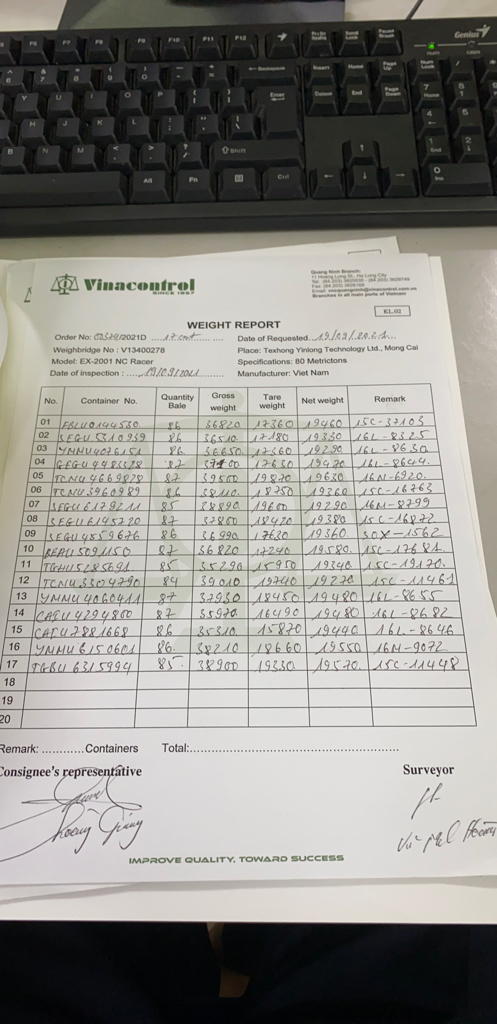 Genius
Vinacontrol
SINCE 1957
Quang Ninh Branch:
11 Hoang Long St., Ha Long City
Branches in all main ports of Vietnam
KL.02
WEIGHT REPORT
Order No: /2021D 17 cont
Date of Requested: 19/09/2021
Weighbridge No : V13400278
Place: Texhong Yinlong Technology Ltd., Mong Cai
Model: EX-2001 NC Racer
Specifications: 80 Metrictons
Date of inspection : 19/09/2021
Manufacturer: Viet Nam
No. Container No. Quantity Bale Gross weight Tare weight Net weight Remark
01 86 36820 17360 19460 15C-37103
02 SEGU5310939 86 36510 17180 19330 16L-8325
03 YMMU4076151 86 36650 17360 19290 16L-8630
04 87 37100 17630 19470 16L-8644
05 TCNU4669828 87 39500 19870 19630 16N-6920
06 TCNU3960989 86 38110 18750 19360 15C-16763
07 SEGU6179211 85 38890 19600 19290 16M-8799
08 SEGU6145720 87 37800 18420 19380 15C-16872
09 SEGU4559676 86 36990 17630 19360 30X-1562
10 87 36820 17240 19580 15C-17681
11 TGHU5285691 85 35290 15950 19340 15C-19170
12 TCNU3304790 84 39010 19740 19270 15C-11461
13 YMMU4060411 87 37930 18450 19480 16L-8655
14 CAIU4294800 87 35970 16490 19480 16L-8682
15 CAIU7881668 86 35310 15870 19440 16L-8646
16 YMMU6150601 86 38210 18660 19550 16M-9072
17 TGBU6315994 85 38900 19330 19570 15C-11448
18
19
20
Remark: ............Containers Total:
Consignee's representative
Surveyor
Hoang Giang
IMPROVE QUALITY, TOWARD SUCCESS